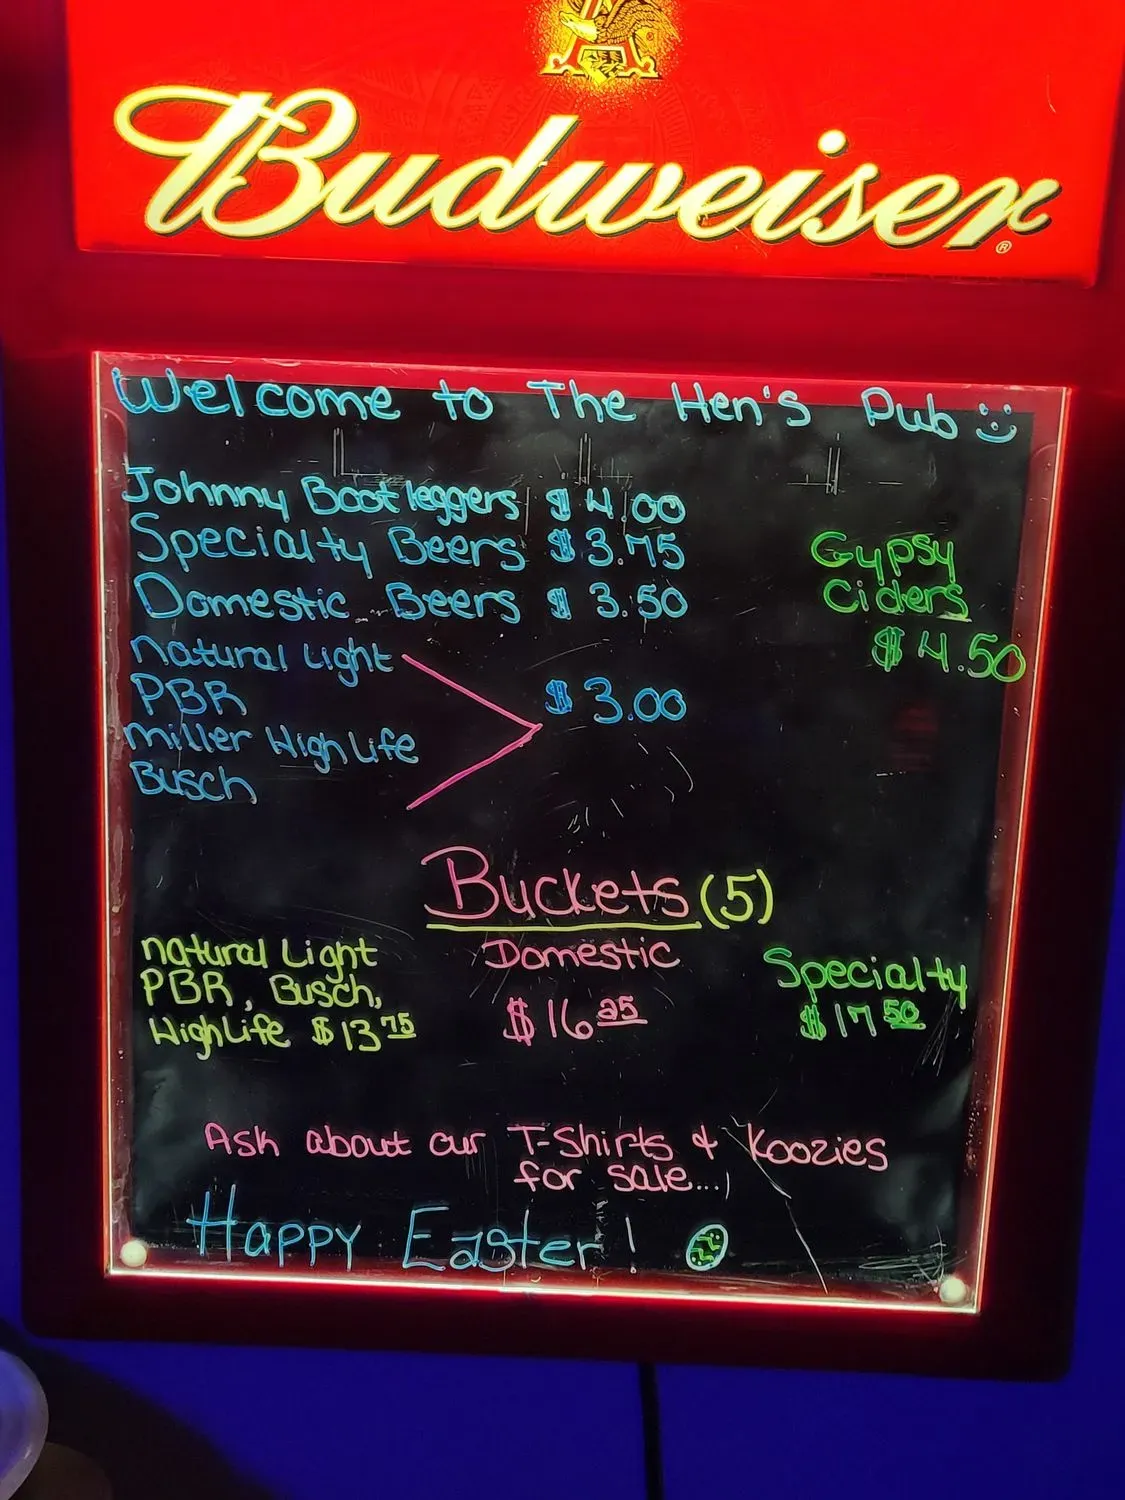 Budweiser
Welcome to The Hen's Pub
Johnny Bootleggers $4.00
Specialty Beers $3.75
Domestic Beers $3.50
Gypsy
Ciders
$4.50
Natural Light
PBR
$3.00
Miller High Life
Busch
Buckets (5)
Natural Light
PBR, Busch,
High Life $13 75
Domestic
$16 25
Specialty
$17 50
Ask about our T-Shirts & Koozies
for sale...
Happy Easter!